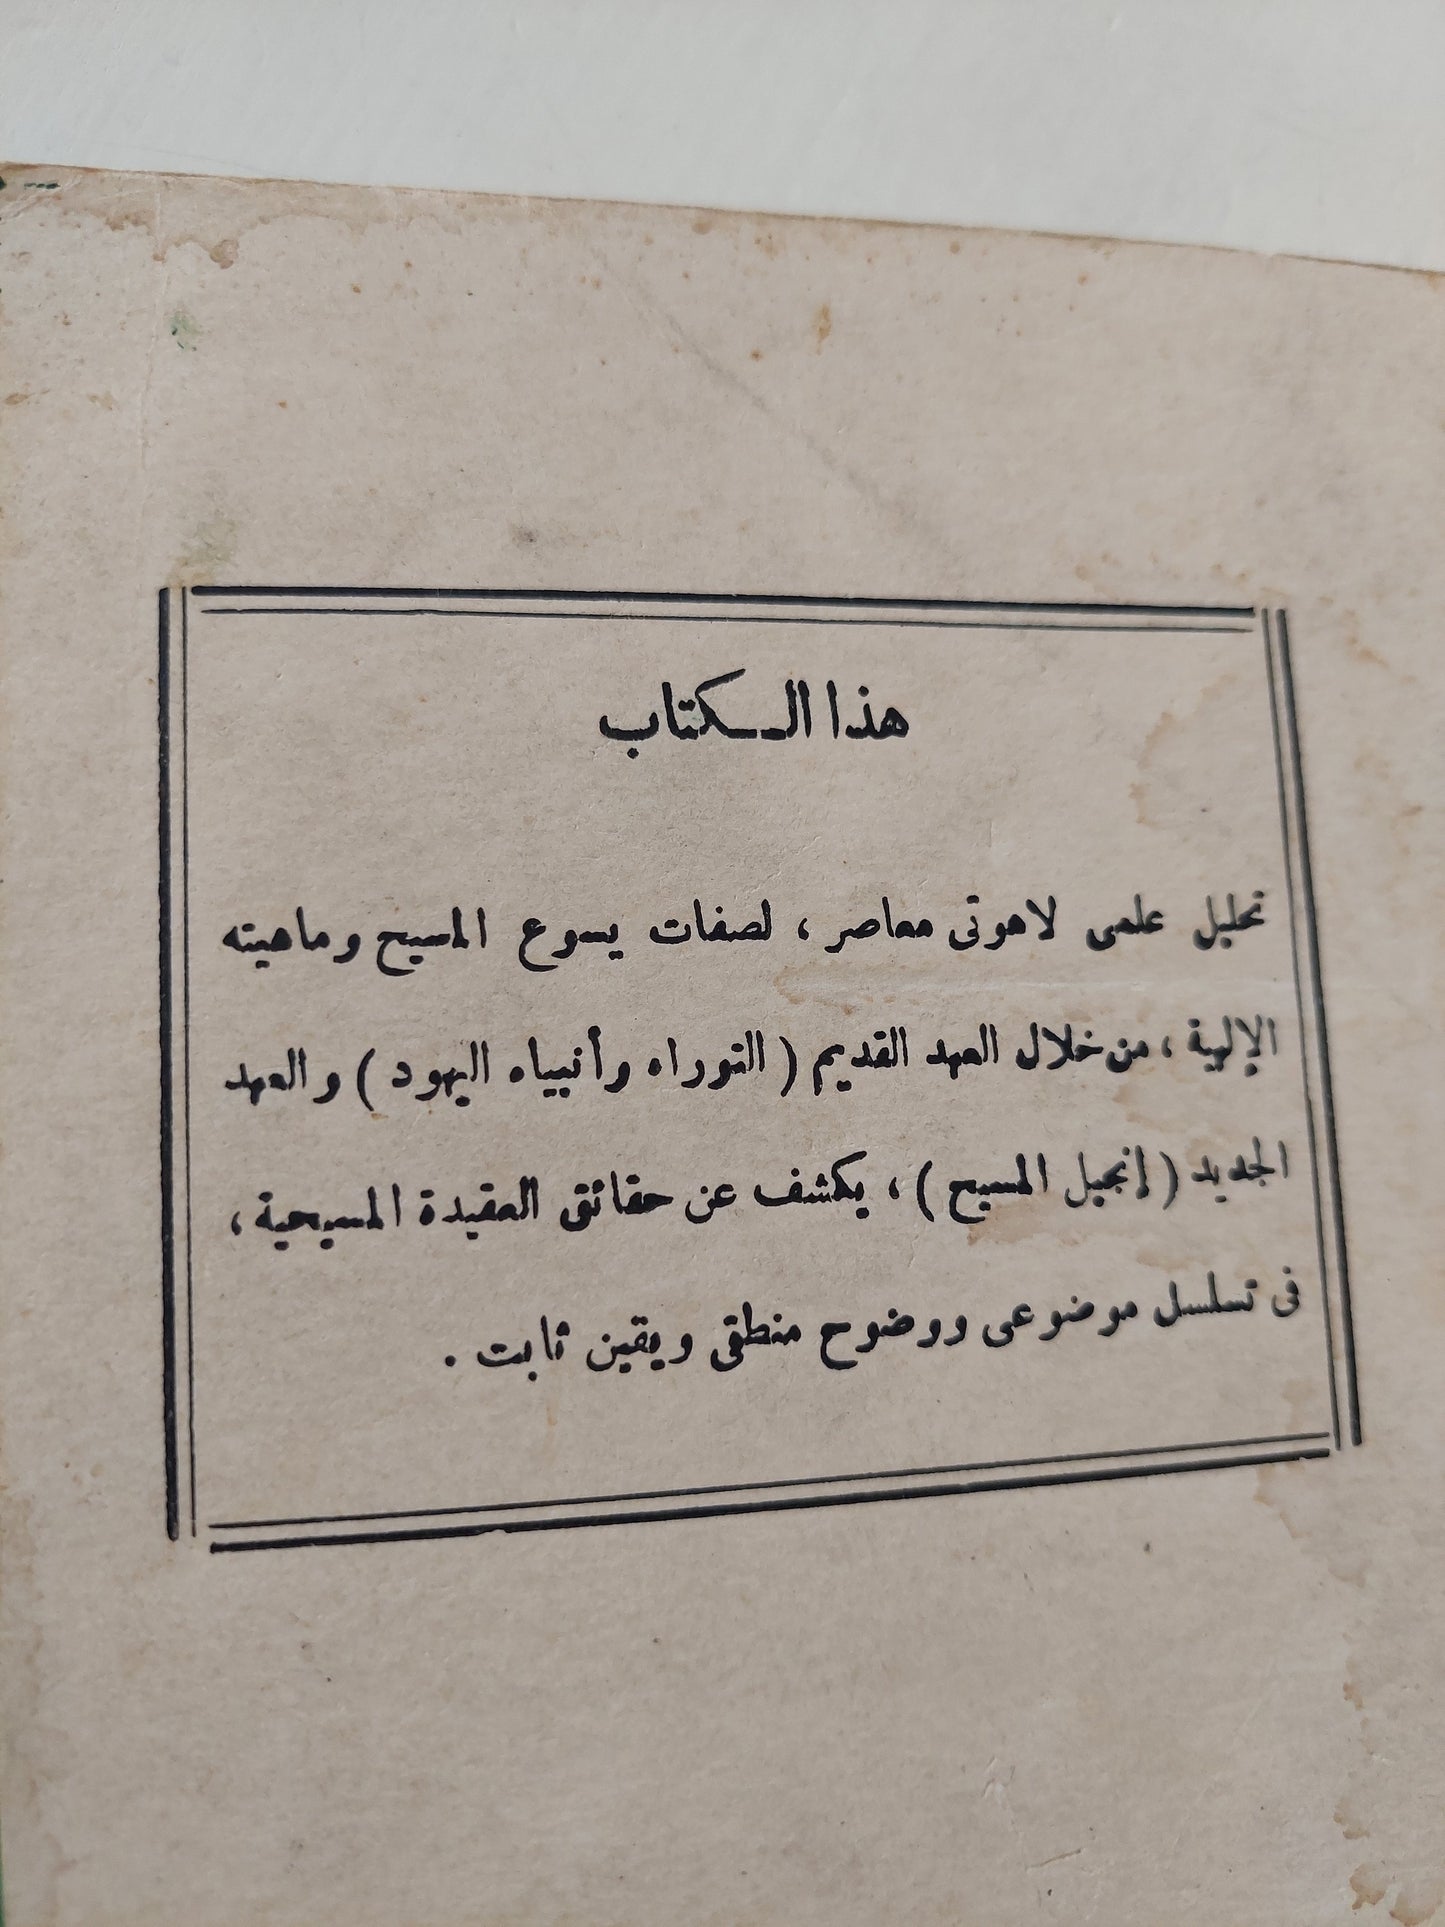 هذا الـكتاب
تحليل علمى لاهوتى معاصر ، لصفات يسوع المسيح وماهيته
الإلهية ، من خلال العهد القديم ( التوراه وأنبياء اليهود ) والعهد
الجديد ( إنجيل المسيح ) ، يكشف عن حقائق العقيدة المسيحية ،
فى تسلسل موضوعى ووضوح منطقى ويقين ثابت .